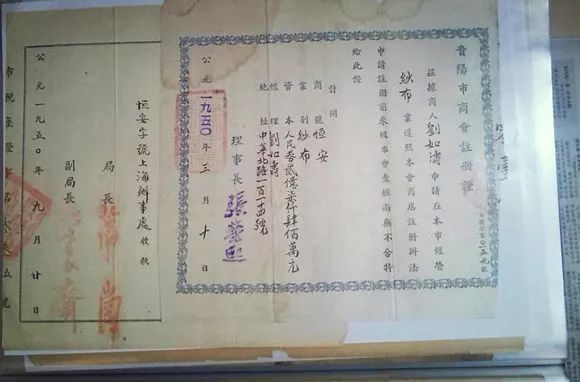 貴陽市商會註册證
茲據商人劉如濤申請在本市經營
紗布業遵照本會商店註册辦法
申請註册前來經事會查核尚無不合特
給此證
計開
商號恒安
業別紗布
資本人民券貳億柒仟肆佰萬元
經理劉如濤
地址中華北路一百一十四號
理事長張榮熙
公元一九五〇年三月十日
恒安字號上海辦事處收款
局長
副局長
公元一九五〇年九月廿日